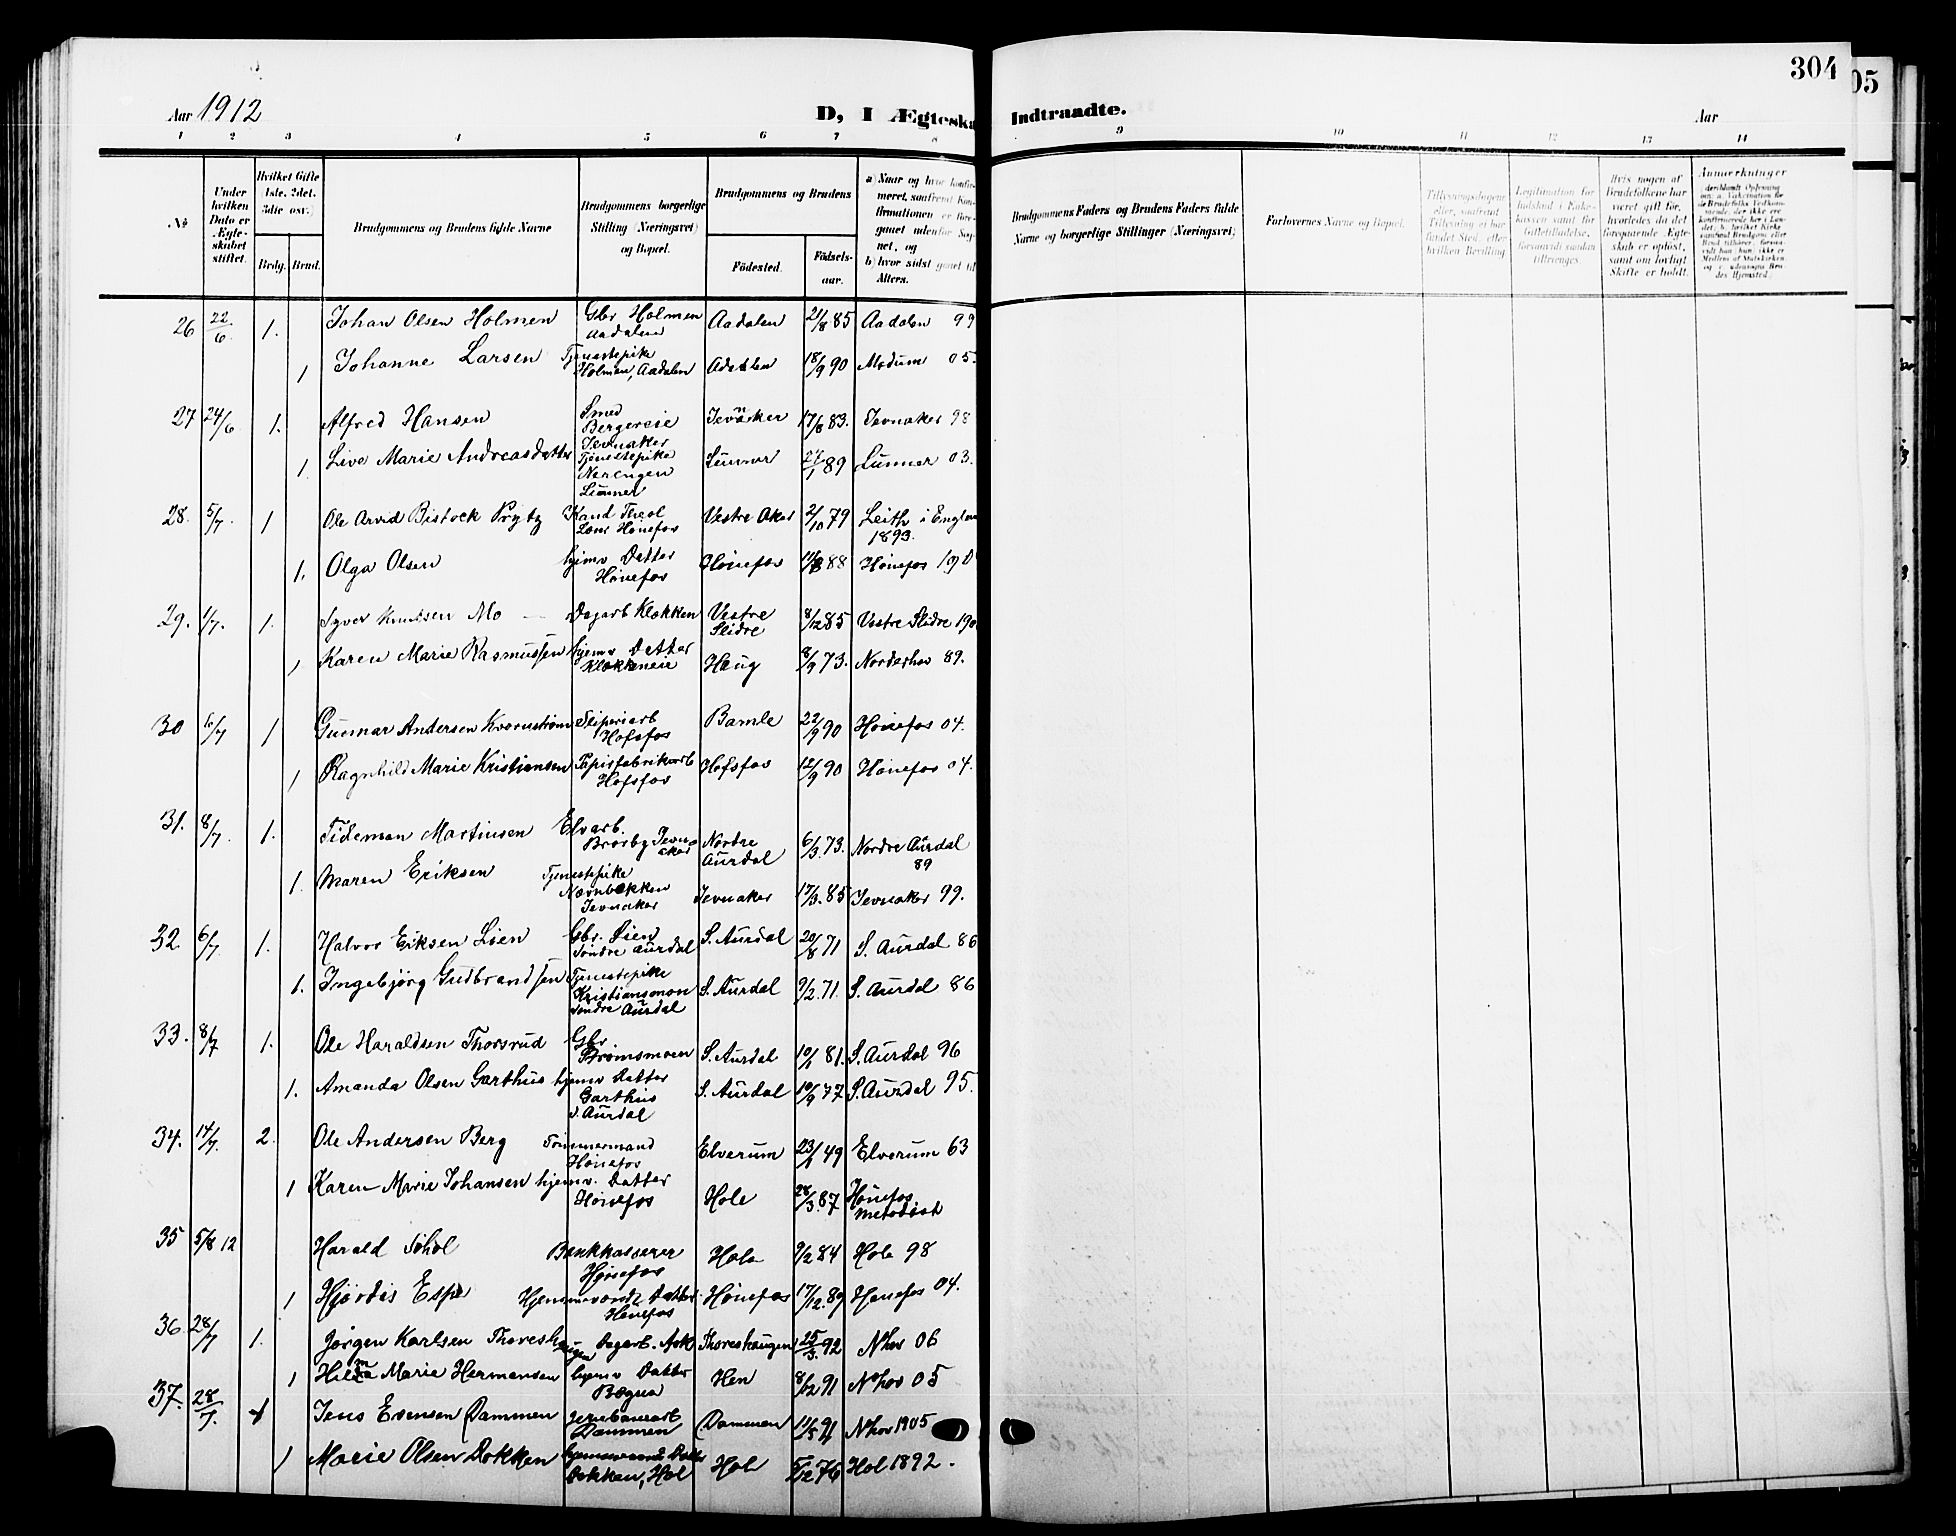 304
05
Aar 1912
D, I Ægteska
Indtraadte.
Aar
1 2 3 4 5 6 7 8 9 10 11 12 13 14
No
Under hvilken Dato er Ægteskabet stiftet.
Hvilket Gifte (1ste, 2det, 3die osv.)
Brdg. Brud.
Brudgommens og Brudens fulde Navne
Brudgommens borgerlige Stilling (Næringsvei) og Bopæl.
Brudgommens og Brudens
Födested.
Födselsaar.
a) Naar og hvor konfirmeret, samfremt Konfirmationen er foregaaet udenfor Sognet, og
b) hvor sidst gaaet til Alters.
Brudgommens Faders og Brudens Faders fulde Navne og borgerlige Stillinger (Næringsvei)
Forlovernes Navne og Bopæl.
Tillysningsdagene eller, saafremt Tillysning ei har fundet Sted, efter hvilken Bevilling
Legitimation for Indskud i Kokekassen samt for Giftetilladelse, forsaavidt saadan tiltrænges.
Hvis nogen af Brudefolkene har været gift för, hvorledes da det foregaaende Ægteskab er oplöst, samt om lovligt Skifte er holdt.
Anmærkninger
26 22/6 1. Johan Olsen Holmen Gbr Holmen Aadalen Aadalen 21/8 85 Aadalen 99
1 Johanne Larsen Tjenestepike Holmen, Aadalen Adalen 18/9 90 Modum 05.
27 24/6 1. Alfred Hansen Smed Bergereie Jevnaker Jevnaker 17/8 83. Jevnaker 98
1 Live Marie Andreasdatter Tjenestepike Norengen Lunner Lunner 27/1 89 Lunner 03.
28. 5/7. 1 Ole Arvid Bistock Prytz Kand Theol Hönefos Vestre Aker 2/10 79 Leith i Englan 1893.
1. Olga Olsen hjemv Datter Hönefos Hönefos 88 Hönefos 190
29. 1/7. 1. Syver Knutsen Mo Dagarb Klækken Vestre Slidre 8/12 85 Vestre Slidre 190
1 Karen Marie Rasmussen hjemv Datter Klækkeneie Haug 8/9 73. Norderhov 89.
30 6/7 1 Gunnar Andersen Kvernstrøm Sliperiarb Hofsfos Bamle 22/9 90 Hönefos 04.
1 Ragnhild Marie Kristiansen Papirfabrikarb Hofsfos Hofsfos 12/9 90 Hönefos 04.
31. 8/7. 1. Tideman Martinsen Elvarb. Brørby Jevnaker Nordre Aurdal 6/3. 73. Nordre Aurdal 89
1. Maren Eriksen Tjenestepike Jevnaker Jevnaker 17/3. 85 Jevnaker 99.
32. 6/7 1. Halvor Eriksen Lien Gbr. Søndre Aurdal S. Aurdal 20/8 71 S. Aurdal 86
1. Ingebjørg Gudbrandsen Tjenestepike Kristiansmoen Søndre Aurdal S. Aurdal 9/2 71. S. Aurdal 86
33. 8/7 1. Ole Haraldsen Thorsrud Gbr. Strømsmoen S. Aurdal 10/1 81. S. Aurdal 96
1. Amanda Olsen Garthus hjemv Datter Garthus S. Aurdal S. Aurdal 10/9 77 S. Aurdal 95.
34. 14/7. 2. Ole Andersen Berg Tömmermand Hönefos Elverum 23/1 49 Elverum 63
1 Karen Marie Johansen hjemv. Datter Hönefos Hole 28/3. 87 Hönefos Metodist
35 5/8 12 Harald Søhol Bankkasserer Hønefos Hole 9/2 84 Hole 98
1 Hjørdis Espe Hjemmeværende Datter Hönefos Hönefos 17/12. 89 Hønefos 04.
36. 28/7 1. Jørgen Karlsen Thoreshaugen Dagarb. Ask Thoreshaugen 25/3. 92 Nhov 06
1 Hilma Marie Hermansen hjemv Datter Bægna Hen 8/12 91 Nhov 05
37. 28/7. 1 Jens Evensen Dammen Jernbanearb Dammen Dammen 11/5 91 Nhov 1905
1 Marie Olsen Dokken hjemmeværende Datter Dokken, Hol Hol 5/12 76 Hol 1892.